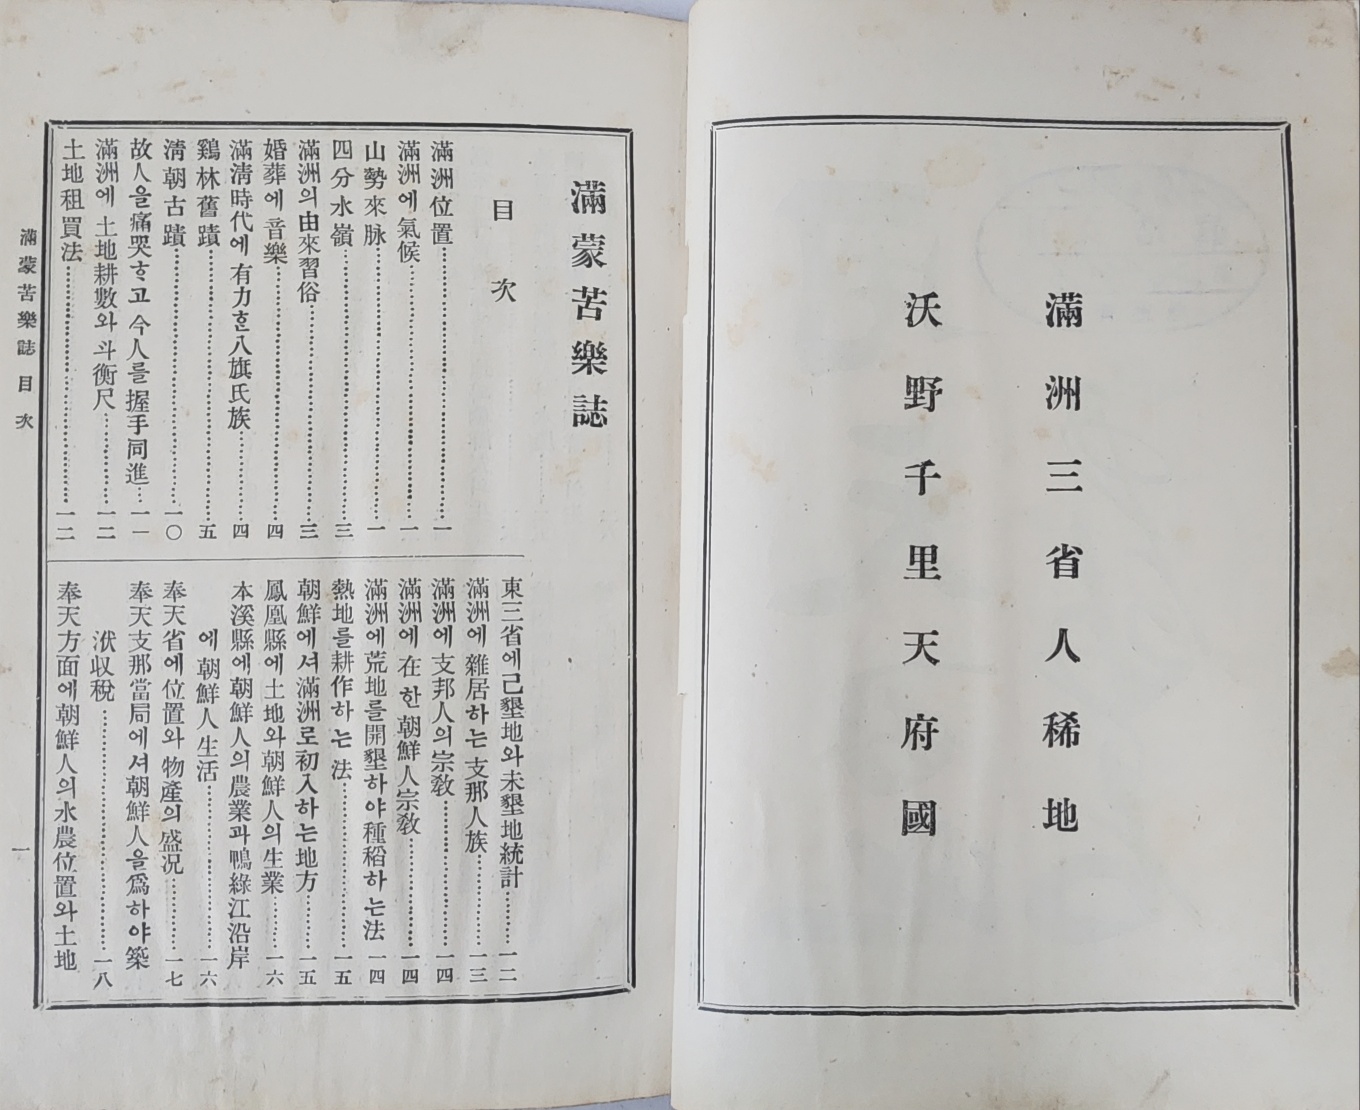 滿洲三省人稀地
沃野千里天府國
滿蒙苦樂誌
目次
滿洲位置……一
滿洲에氣候……一
山勢來脉……一
四分水嶺……三
滿洲의由來習俗……三
婚葬에音樂……四
滿淸時代에有力ᄒᆞᆫ八旗氏族……四
鷄林舊蹟……五
淸朝古蹟……一〇
故人을痛哭ᄒᆞ고今人를握手同進……一一
滿洲에土地耕數와斗衡尺……一二
土地租買法……一二
東三省에己墾地와未墾地統計……一二
滿洲에雜居하는支那人族……一三
滿洲에支邦人의宗敎……一四
滿洲에在한朝鮮人宗敎……一四
滿洲에荒地를開墾하야種稻하는法 一四
熱地를耕作하는法……一五
朝鮮에셔滿洲로初入하는地方……一五
鳳凰縣에土地와朝鮮人의生業……一六
本溪縣에朝鮮人의農業과鴨綠江沿岸
에朝鮮人生活……一六
奉天省에位置와物產의盛况……一七
奉天支那當局에셔朝鮮人을爲하야築
洑収稅……一八
奉天方面에朝鮮人의水農位置와土地
滿蒙苦樂誌 目次
一